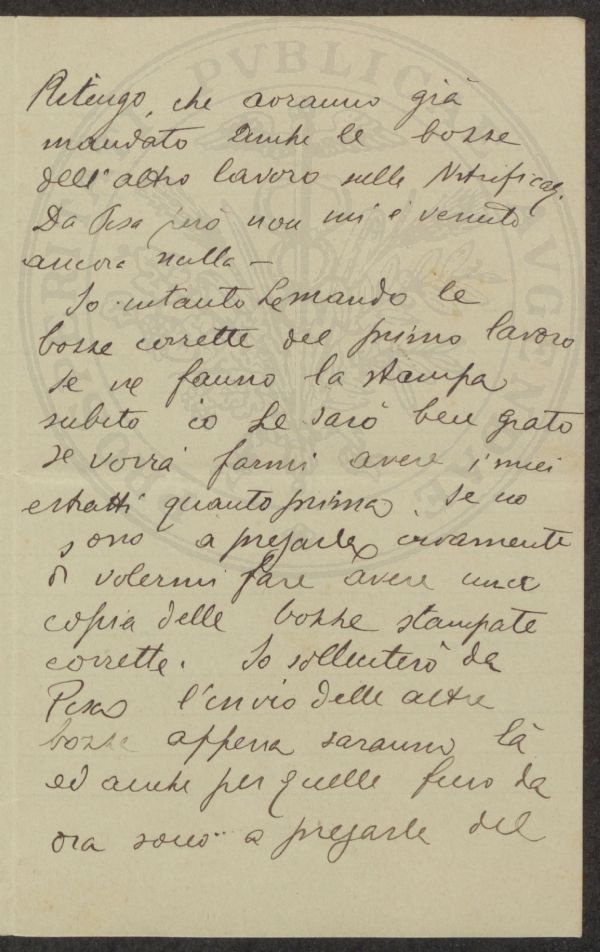 Ritengo che avranno già
mandato anche le bozze
dell'altro lavoro sulla Nitrificaz.
Da Pisa però non mi è venuto
ancora nulla –
Io intanto Le mando le
bozze corrette del primo lavoro
se ne fanno la stampa
subito io Le sarò ben grato
se vorrà farmi avere i miei
estratti quanto prima. Se no
sono a pregarla vivamente
di volermi fare avere una
copia delle bozze stampate
corrette. Io solleciterò da
Pisa l'invio delle altre
bozze appena saranno là
ed anche per quelle fino da
ora sono a pregarla del
PVBLICAE